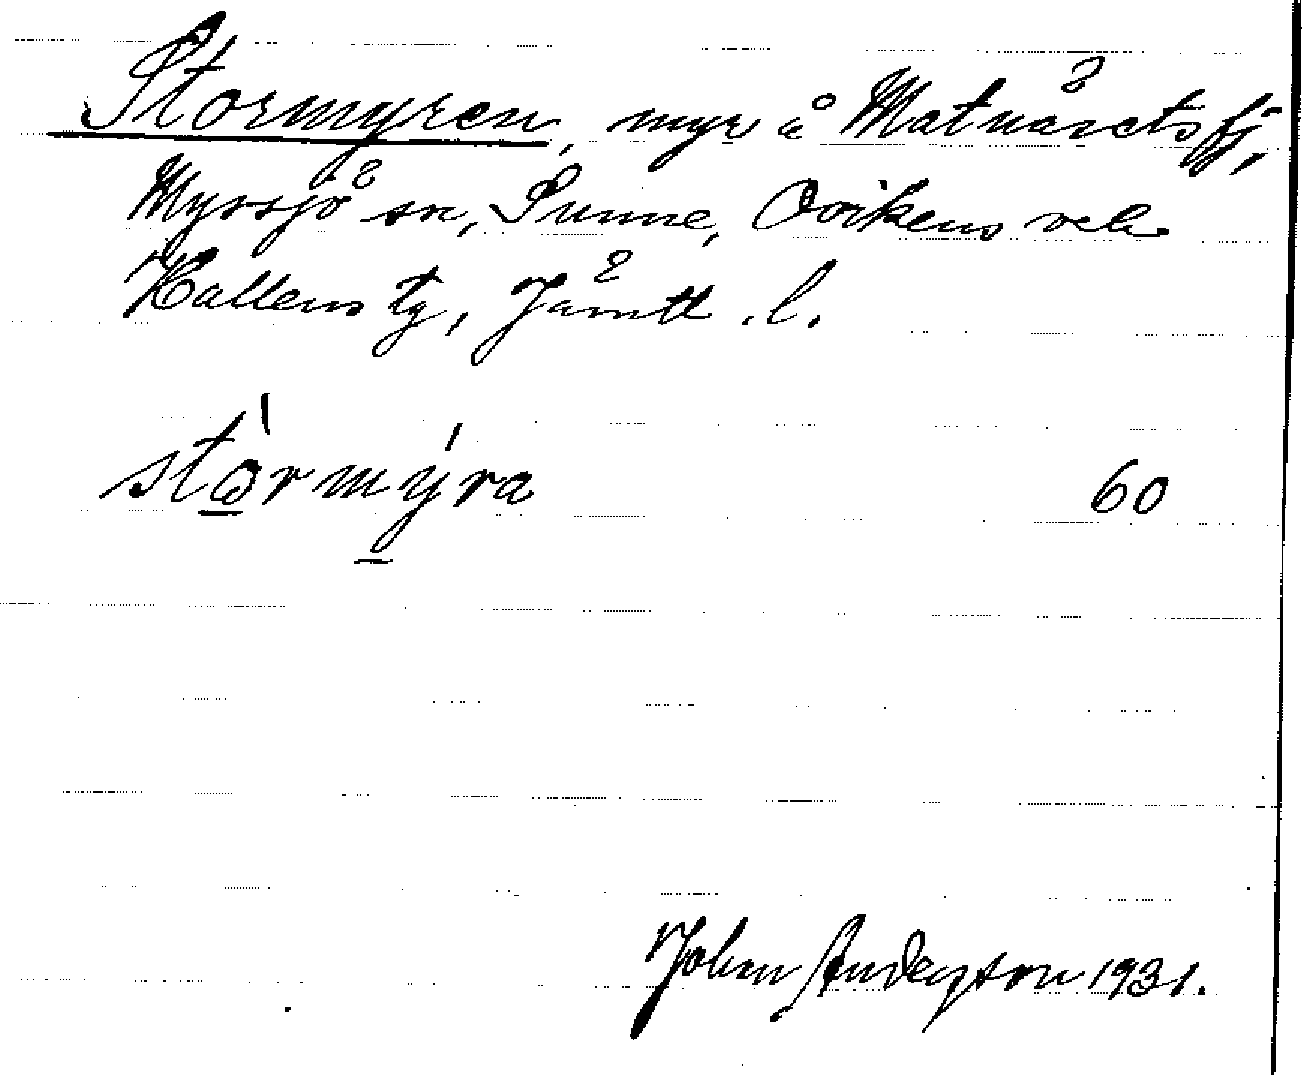 Stormyren, myr å Matnäsetsfj,
Myssjö sn, Sunne, Ovikens och
Hallens tg, Jämtl. l.
stormyra 60
John Anderson 1931.